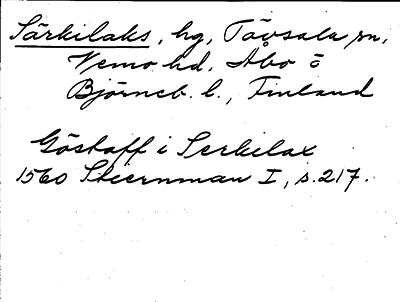 Särkilaks, hg, Tövsala sn,
Vemo hd, Åbo o
Björneb. l., Finland
Göstaff i Serkilax
1560 Stiernman I, s. 217.